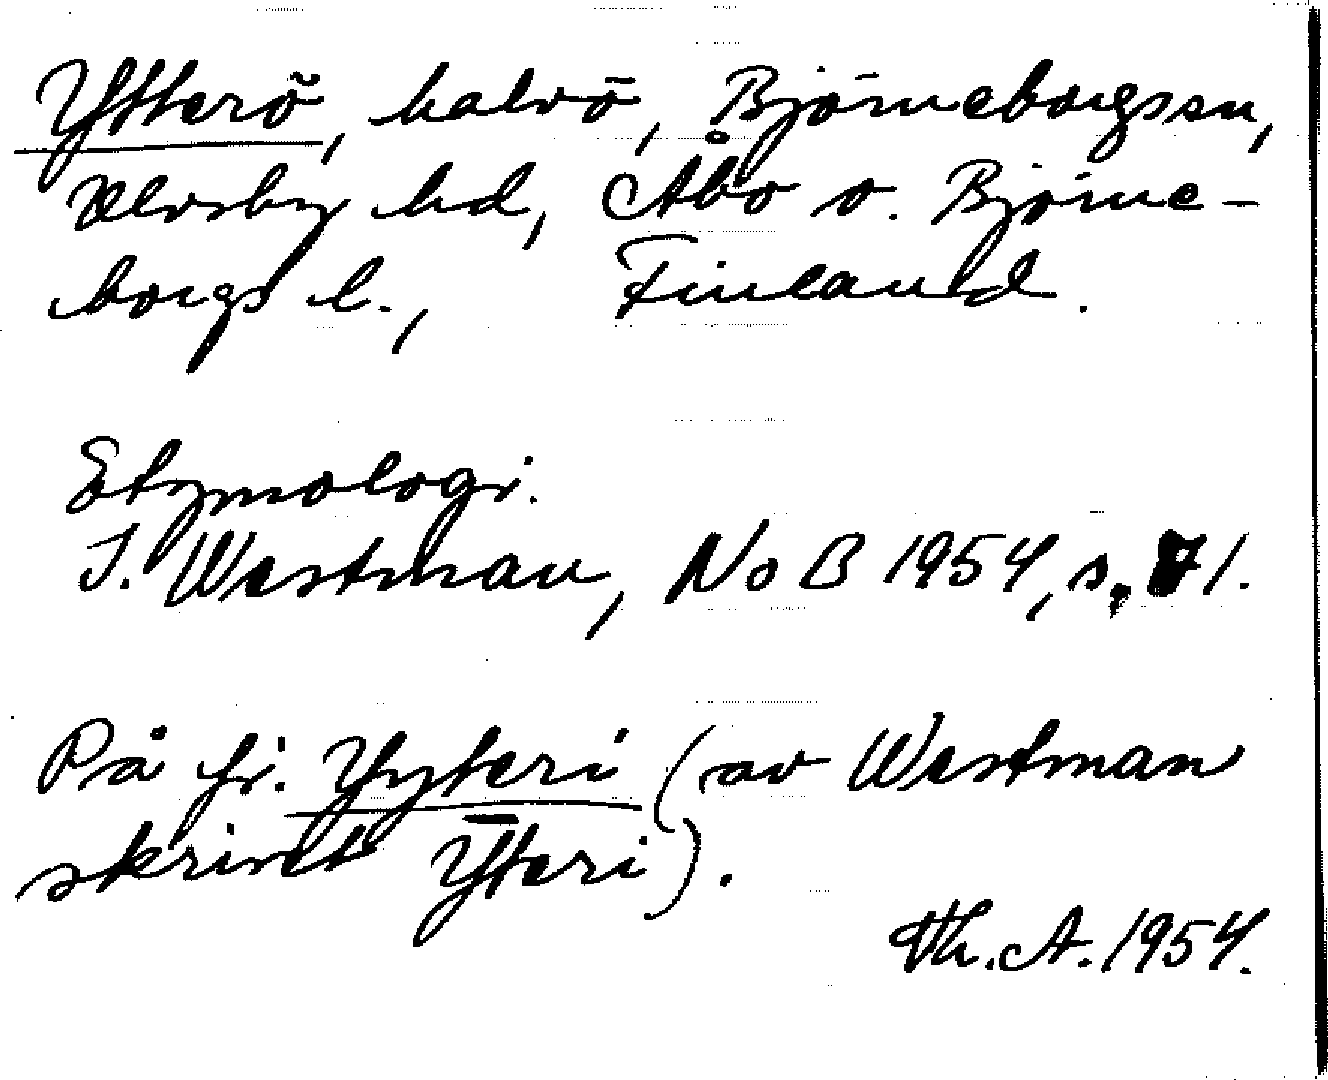 Ytterö, halvö, Björneborgssn,
Ulvsby hd, Åbo o. Björne-
borgs l., Finland.
Etymologi.
I. Westman, NoB 1954, s. 71.
På fi. Yyteri (av Westman
skrivet Ȳteri).
Th. A. 1954.